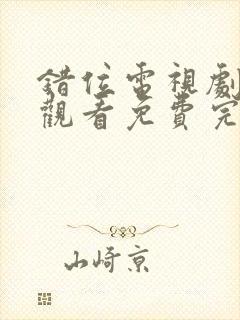 錯位電視劇
觀看免費完
山崎京